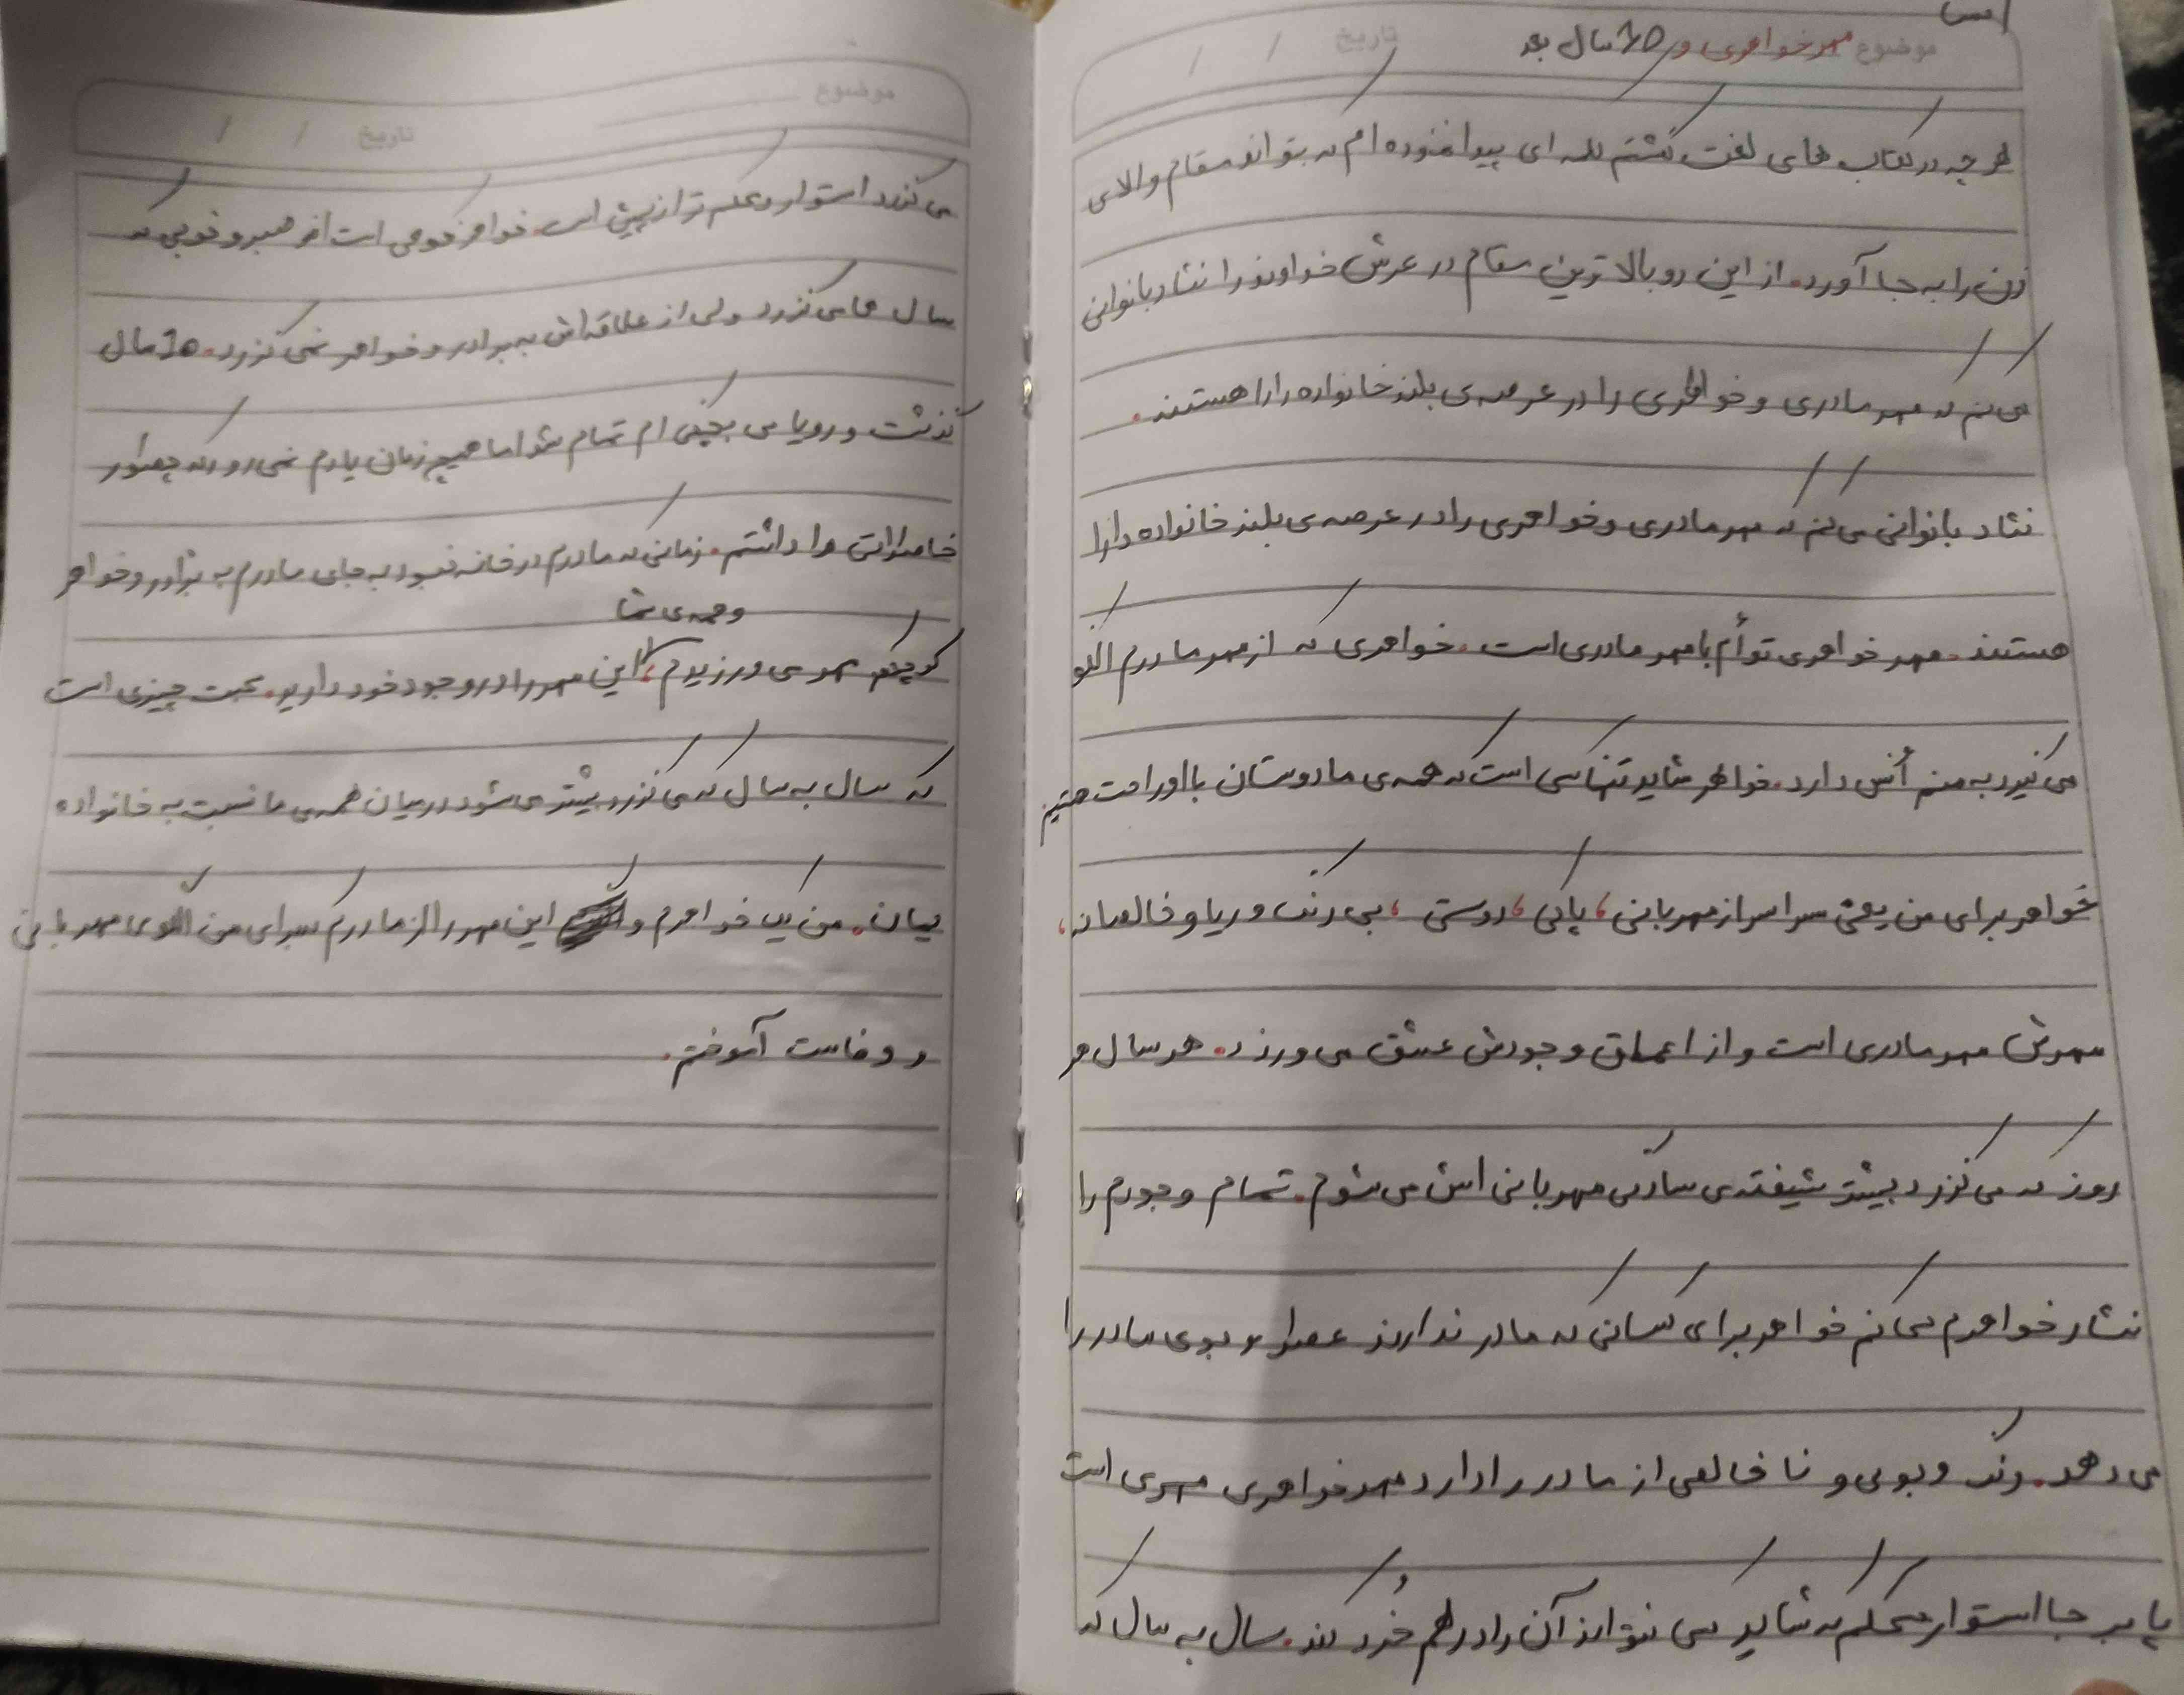 موضوع مهر خواهری و 10 سال بعد تاریخ / /
هر چه در کتاب های لغت گشتم کلمه ای پیدا ننموده ام که بتواند مقام والای
زن را به جا آورد. از این رو بالا ترین مقام در عرش خداوند را نثار بانوانی
می کنم که مهر مادری و خواهری را در عرصه ی بلند خانواده دارا هستند.
نثار بانوانی می کنم که مهر مادری و خواهری را در عرصه ی بلند خانواده دارا
هستند. مهر خواهری توأم با مهر مادری است. خواهری که از مهر مادرم الگو
می گیرد به منم اُنس دارد. خواهر شاید تنها کسی است که همه ی ما دوستان با او راحت هستیم
خواهر برای من یعنی سراسر از مهربانی، پاکی، دوستی، بی رنگ و ریا و خالصانه،
مهرش مهر مادری است و از اعماق وجودش عشق می ورزد. هر سال هر
روز که می گزرد بیشتر شیفته ی سادگی مهربانی اش می شوم. تمام وجودم را
نثار خواهرم می کنم خواهر برای کسانی که مادر ندارند عطر و بوی مادر را
می دهد. رنگ و بوی و نا خالصی از مادر را دارد مهر خواهری مهری است
پا بر جا استوار محکم که شاید کسی نتواند آن را در هم خُرد کند. سال به سال که
موضوع
تاریخ / /
می گزرد استوار و محکم تر از پیش است. خواهر کوهی است از صبر و خوبی که
سال ها می گزرد ولی از علاقه اش به برادر و خواهر نمی گزرد. 10 سال
گذشت و رویا ی بچگی ام تمام شد اما هیچ زمان یادم نمی رود که چطور
خاطراتی را داشتم. زمانی که مادرم در خانه نبود به جای مادرم به برادر و خواهر
و همه ی شما
کوچکم مهر می ورزیدم، این مهر را در وجود خود دارید. محبت چیزی است
که سال به سال که می گزرد بیشتر می شود در میان همه ی ما نسبت به خانواده
یمان. من یک خواهرم و این مهر را از مادرم که برای من الگوی مهربانی
و وفاست آموختم.